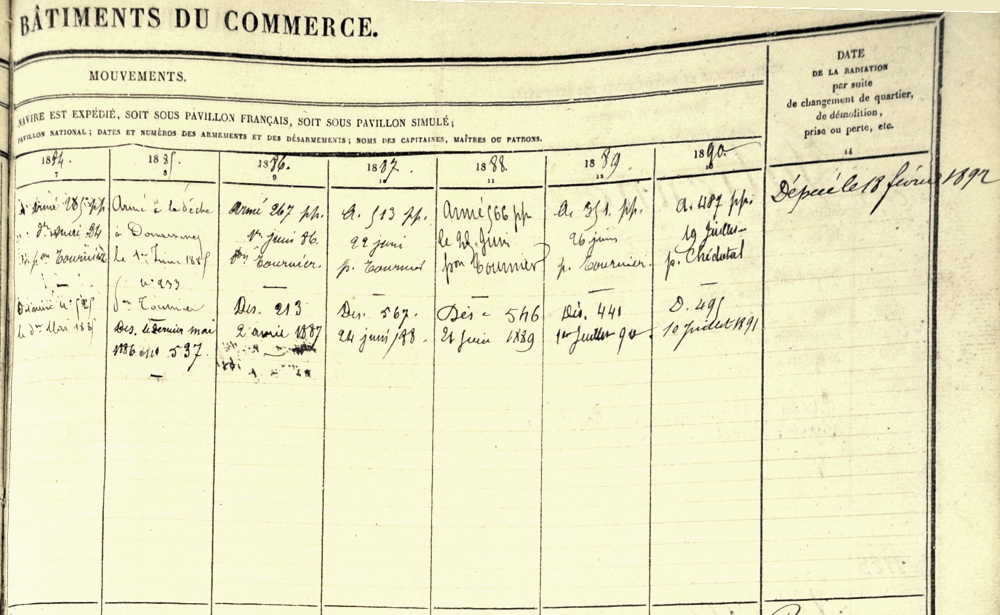 BÂTIMENTS DU COMMERCE.
MOUVEMENTS.
NAVIRE EST EXPÉDIÉ, SOIT SOUS PAVILLON FRANÇAIS, SOIT SOUS PAVILLON SIMULÉ;
PAVILLON NATIONAL; DATES ET NUMÉROS DES ARMEMENTS ET DES DÉSARMEMENTS; NOMS DES CAPITAINES, MAÎTRES OU PATRONS.
DATE
DE LA RADIATION
par suite
de changement de quartier,
de démolition,
prise ou perte, etc.
14
1884.
7
Armé pp.
mai 84
Tournier
le Mai 1885
1885.
8
Armé à la pêche
à
le 1er Juin 1885
n° 233
Tournier
Des. le dernier mai
1886 537.
1886.
9
Armé 267 pp.
1er juin 86.
Tournier.
Des. 213
2 avril 1887
1887.
10
A. 513 pp.
22 juin
p. Tournier
Des. 567.
24 juin/88.
1888
11
Armé 566 pp
le Juin
pon Tournier
Dés 546
21 Juin 1889
1889.
A. 351. pp.
26 juin
p. Tournier.
Dés. 441
1er Juillet 90
1890.
A. 487 pp.
19 Juillet
p.
D. 495
10 Juillet 1891
Dépecé le 18 février 1892